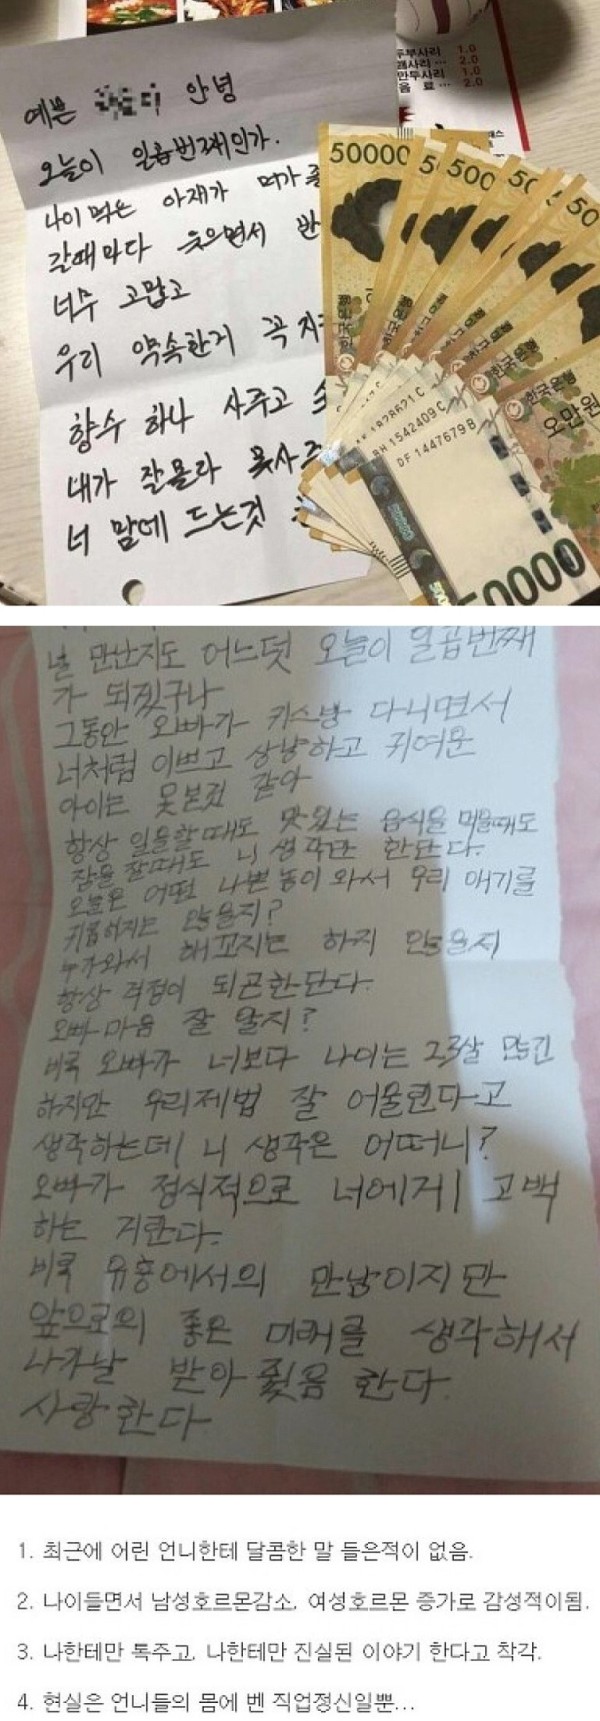 두부사리 1.0
2.0
만두사리 1.0
음 료 ... 2.0
예쁜 안녕
오늘이 일곱번째인가.
나이 먹은 아재가 머가 좋
갈때마다 웃으면서 반
너무 고맙고
우리 약속한거 꼭 지
향수 하나 사주고
내가 잘몰라 못사
너 맘에 드는것
50000
5
500
50
50
한국은행
한국은행
한국은행
한국은행
오만원
BH 1542409 C
DF 1447679 B
50000
널 만난지도 어느덧 오늘이 일곱번째
가 되겠구나
그동안 오빠가 키스방 다니면서
너처럼 이쁘고 상냥하고 귀여운
아이는 못본거 같아
항상 일을할때도 맛있는 음식을 먹을때도
잠을 잘때도 니 생각만 한단다.
오늘은 어떤 나쁜놈이 와서 우리 애기를
괴롭히지는 않을지?
누가와서 해꼬지는 하지 않을지
항상 걱정이 되곤한단다.
오빠 마음 잘 알지?
비록 오빠가 너보다 나이는 23살 많긴
하지만 우리제법 잘 어울린다고
생각하는데 니 생각은 어떠니?
오빠가 정식적으로 너에게 고백
하는 거란다.
비록 유흥에서의 만남이지만
앞으로의 좋은 미래를 생각해서
나가날 받아줬음 한다.
사랑한다
1. 최근에 어린 언니한테 달콤한 말 들은적이 없음.
2. 나이들면서 남성호르몬감소, 여성호르몬 증가로 감성적이됨.
3. 나한테만 톡주고, 나한테만 진실된 이야기 한다고 착각.
4. 현실은 언니들의 몸에 벤 직업정신일뿐...